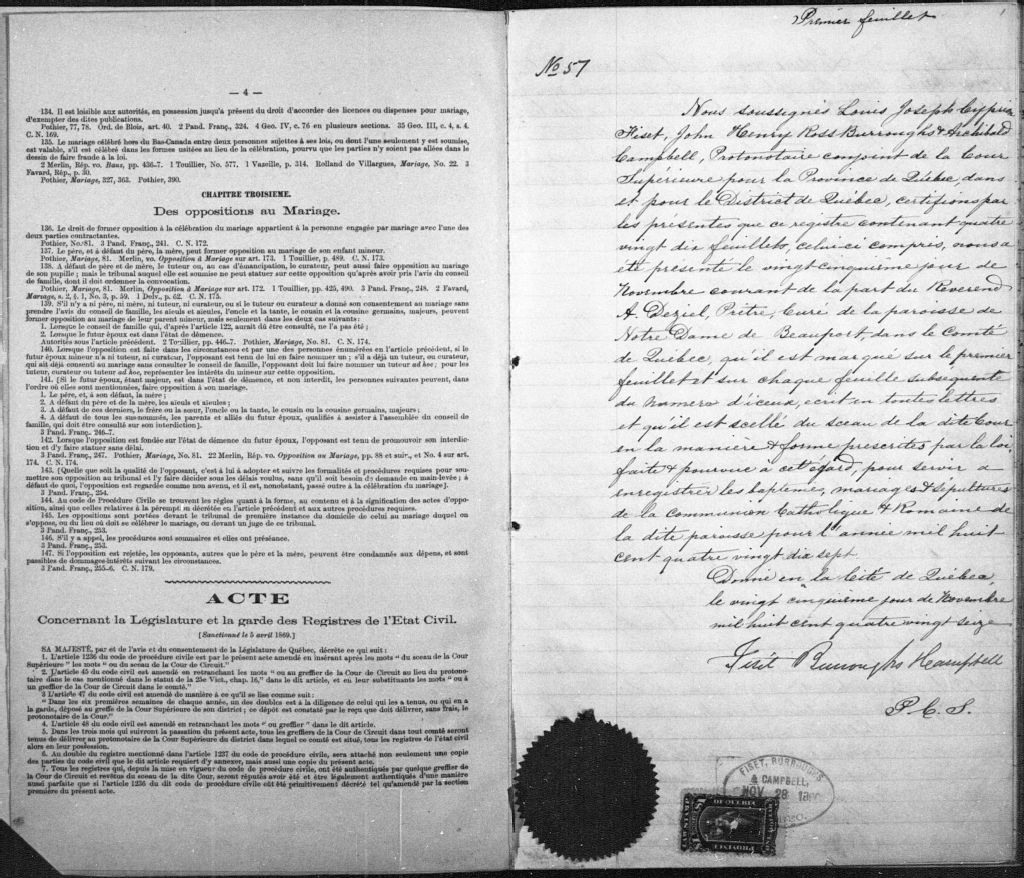 — 4 —
134. Il est loisible aux autorités, en possession jusqu'à présent du droit d'accorder des licences ou dispenses pour mariage,
d'exempter des dites publications.
Pothier, 77, 78. Ord. de Blois, art. 40. 2 Pand. Franç., 324. 4 Geo. IV, c. 76 en plusieurs sections. 35 Geo. III, c. 4, s. 4.
C. N. 169.
135. Le mariage célébré hors du Bas-Canada entre deux personnes sujettes à ses lois, ou dont l'une seulement y est soumise,
est valable, s'il est célébré dans les formes usitées au lieu de la célébration, pourvu que les parties n'y soient pas allées dans le
dessin de faire fraude à la loi.
2 Merlin, Rép. vo. Bans, pp. 436-7. 1 Touillier, No. 577. 1 Vazeille, p. 314. Rolland de Villargues, Mariage, No. 22. 3
Favard, Rép., p. 30.
Pothier, Mariage, 327, 363. Pothier, 390.
CHAPITRE TROISIEME.
Des oppositions au Mariage.
136. Le droit de former opposition à la célébration du mariage appartient à la personne engagée par mariage avec l'une des
deux parties contractantes.
Pothier, No. 81. 3 Pand. Franç., 241. C. N. 172.
137. Le père, et à défaut du père, la mère, peut former opposition au mariage de son enfant mineur.
Pothier, Mariage, 81. Merlin, vo. Opposition à Mariage sur art. 173. 1 Touillier, p. 489. C. N. 173.
138. A défaut de père et de mère, le tuteur ou, au cas d'émancipation, le curateur, peut aussi faire opposition au mariage
de son pupille ; mais le tribunal auquel elle est soumise ne peut statuer sur cette opposition qu'après avoir pris l'avis du conseil
de famille, dont il doit ordonner la convocation.
Pothier, Mariage, 81. Merlin, Opposition à Mariage sur art. 172. 1 Touillier, pp. 425, 490. 3 Pand. Franç., 248. 2 Favard,
Mariage, s. 2, § 1, No. 3, p. 59. 1 Delv., p. 62. C. N. 175.
139. S'il n'y a ni père, ni mère, ni tuteur, ni curateur, ou si le tuteur ou curateur a donné son consentement au mariage sans
prendre l'avis du conseil de famille, les aieuls et aieules, l'oncle et la tante, le cousin et la cousine germains, majeurs, peuvent
former opposition au mariage de leur parent mineur, mais seulement dans les deux cas suivants :
1. Lorsque le conseil de famille qui, d'après l'article 122, aurait dû être consulté, ne l'a pas été ;
2. Lorsque le futur époux est dans l'état de démence.
Autorités sous l'article précédent. 2 Touillier, pp. 446-7. Pothier, Mariage, No. 81. C. N. 174.
140. Lorsque l'opposition est faite dans les circonstances et par une des personnes énumérées en l'article précédent, si le
futur époux mineur n'a ni tuteur, ni curateur, l'opposant est tenu de lui en faire nommer un ; s'il a déjà un tuteur, ou curateur,
qui ait déjà consenti au mariage sans consulter le conseil de famille, l'opposant doit lui faire nommer un tuteur ad hoc ; pour les
tuteur, curateur ou tuteur ad hoc, représenter les intérêts du mineur sur cette opposition.
141. [Si le futur époux, étant majeur, est dans l'état de démence, et non interdit, les personnes suivantes peuvent, dans
l'ordre où elles sont mentionnées, faire opposition à son mariage.
1. Le père, et, à son défant, la mère ;
2. A défaut du père et de la mère, les aieuls et aieules ;
3. A défaut de ces derniers, le frère ou la sœur, l'oncle ou la tante, le cousin ou la cousine germains, majeurs ;
4. A défaut de tous les sus-nommés, les parents et alliés du futur époux, qualifiés à assister à l'assemblée du conseil de
famille, qui doit être consulté sur son interdiction].
3 Pand. Franç. 246-7.
142. Lorsque l'opposition est fondée sur l'état de démence du futur époux, l'opposant est tenu de promouvoir son interdic-
tion et d'y faire statuer sans délai.
3 Pand. Franç., 247. Pothier, Mariage, No. 81. 22 Merlin, Rép. vo. Opposition au Mariage, pp. 88 et suiv., et No. 4 sur art.
174. C. N. 174.
143. [Quelle que soit la qualité de l'opposant, c'est à lui à adopter et suivre les formalités et procédures requises pour sou-
mettre son opposition au tribunal et l'y faire décider sous les délais voulus, sans qu'il soit besoin de demande en main-levée ; à
défaut de quoi, l'opposition est regardée comme non avenu, et il est, nonobstant, passé outre à la célébration du mariage].
3 Pand. Franç., 254.
144. Au code de Procédure Civile se trouvent les règles quant à la forme, au contenu et à la signification des actes d'oppo-
sition, ainsi que celles relatives à la péremption décrétée en l'article précédent et aux autres procédures requises.
145. Les oppositions sont portées devant le tribunal de première instance du domicile de celui au mariage duquel on
s'oppose, ou du lieu où doit se célébrer le mariage, ou devant un juge de ce tribunal.
3 Pand. Franç., 253.
146. S'il y a appel, les procédures sont sommaires et elles ont préséance.
3 Pand. Franç., 253.
147. Si l'opposition est rejetée, les opposants, autres que le père et la mère, peuvent être condamnés aux dépens, et sont
passibles de dommages-intérêts suivant les circonstances.
3 Pand. Franç., 255-6. C. N. 179.
ACTE
Concernant la Législature et la garde des Registres de l'Etat Civil.
[Sanctionné le 5 avril 1869.]
SA MAJESTÉ, par et de l'avis et du consentement de la Législature de Québec, décrète ce qui suit :
1. L'article 1236 du code de procédure civile est par le présent acte amendé en insérant après les mots " du sceau de la Cour
Supérieure " les mots " ou du sceau de la Cour de Circuit."
2. L'article 45 du code civil est amendé en retranchant les mots " ou au greffier de la Cour de Circuit au lieu du protono-
taire dans le cas mentionné dans le statut de la 25e Vict., chap. 16," dans le dit article, et en leur substituants les mots " ou à
un greffier de la Cour de Circuit dans le comté."
3 L'article 47 du code civil est amendé de manière à ce qu'il se lise comme suit :
" Dans les six premières semaines de chaque année, un des doubles est à la diligence de celui qui les a tenus, ou qui en a
la garde, déposé au greffe de la Cour Supérieure de son district ; ce dépôt est constaté par le reçu que doit délivrer, sans frais, le
protonotaire de la Cour."
4. L'article 48 du code civil est amendé en retranchant les mots " ou greffier " dans le dit article.
5. Dans les trois mois qui suivront la passation du présent acte, tous les greffiers de la Cour de Circuit dans tout comté seront
tenus de délivrer au protonotaire de la Cour Supérieure du district dans lequel ce comté est situé, tous les registres de l'état civil
alors en leur possession.
6. Au double du registre mentionné dans l'article 1237 du code de procédure civile, sera attaché non seulement une copie
des parties du code civil que le dit article requiert d'y annexer, mais aussi une copie du présent acte.
7. Tous les registres qui, depuis la mise en vigueur du code de procédure civile, ont été authentiqués par quelque greffier de
la Cour de Circuit et revêtus du sceau de la dite Cour, seront réputés avoir été et être légalement authentiqués d'une manière
aussi parfaite que si l'article 1236 du dit code de procédure civile eût été primitivement décrété tel qu'amendé par la section
première du présent acte.
Premier feuillet
1
No 57
Nous soussignés Louis Joseph Cyprien
Fiset, John Henry Ross Burroughs & Archibald
Campbell, Protonotaire conjoint de la Cour
Supérieure pour la Province de Québec, dans
et pour le District de Québec, certifions par
les présentes que ce registre contenant quatre
vingt dix feuillets, celui ci compris, nous a
été présenté le vingt cinquième jour de
Novembre courant de la part du Reverend
A. Deziel, Prêtre, Curé de la paroisse de
Notre Dame de Beauport, dans le Comté
de Québec, qu'il est marqué sur le premier
feuillet et sur chaque feuille subsequente
du numero d'iceux, ecrit en toutes lettres
et qu'il est scellé du sceau de la dite Cour
en la manière & forme prescrites par la loi,
faite & pourvue à cet égard, pour servir a
enregistrer les baptêmes, mariages & sépultures
de la Communion Catholique & Romaine de
la dite paroisse pour l'année mil huit
cent quatre vingt dix sept.
Donné en la Cité de Québec,
le vingt cinquième jour de Novembre
mil huit cent quatre vingt seize
Fisét Burroughs & Campbell
P. C. S.
FISET, BURROUGHS
& CAMPBELL,
NOV 28
PROVINCE
DE QUEBEC